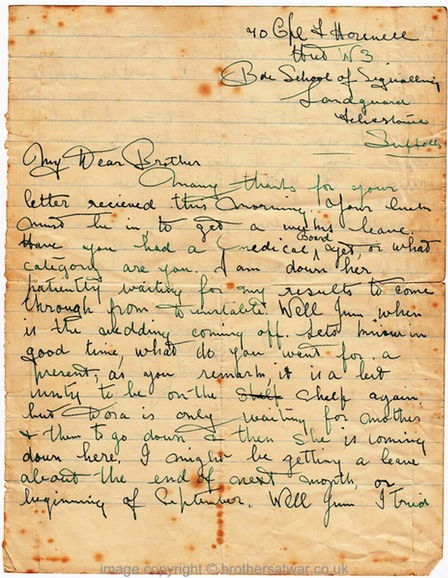 70 Cpl F Horwell
Hut N3
Bde School of Signalling
Landguard
Felixstowe
Suffolk
My Dear Brother
Many thanks for your
letter recieved this morning. Your luck
must be in, to get a months leave.
Have you had a medical Board yet, or what
category are you. I am down her
patiently waiting for any results to come
through from Well Jim when
is the wedding coming off. Lets know in
good time, what do you want for a
present, as you remark it is a bit
to be on the shelf again,
but Dora is only waiting for mother
& them to go down & then she is coming
down here. I might be getting a leave
about the end of next month, or
beginning of September. Well Jim I tried
image copyright © brothersatwar.co.uk